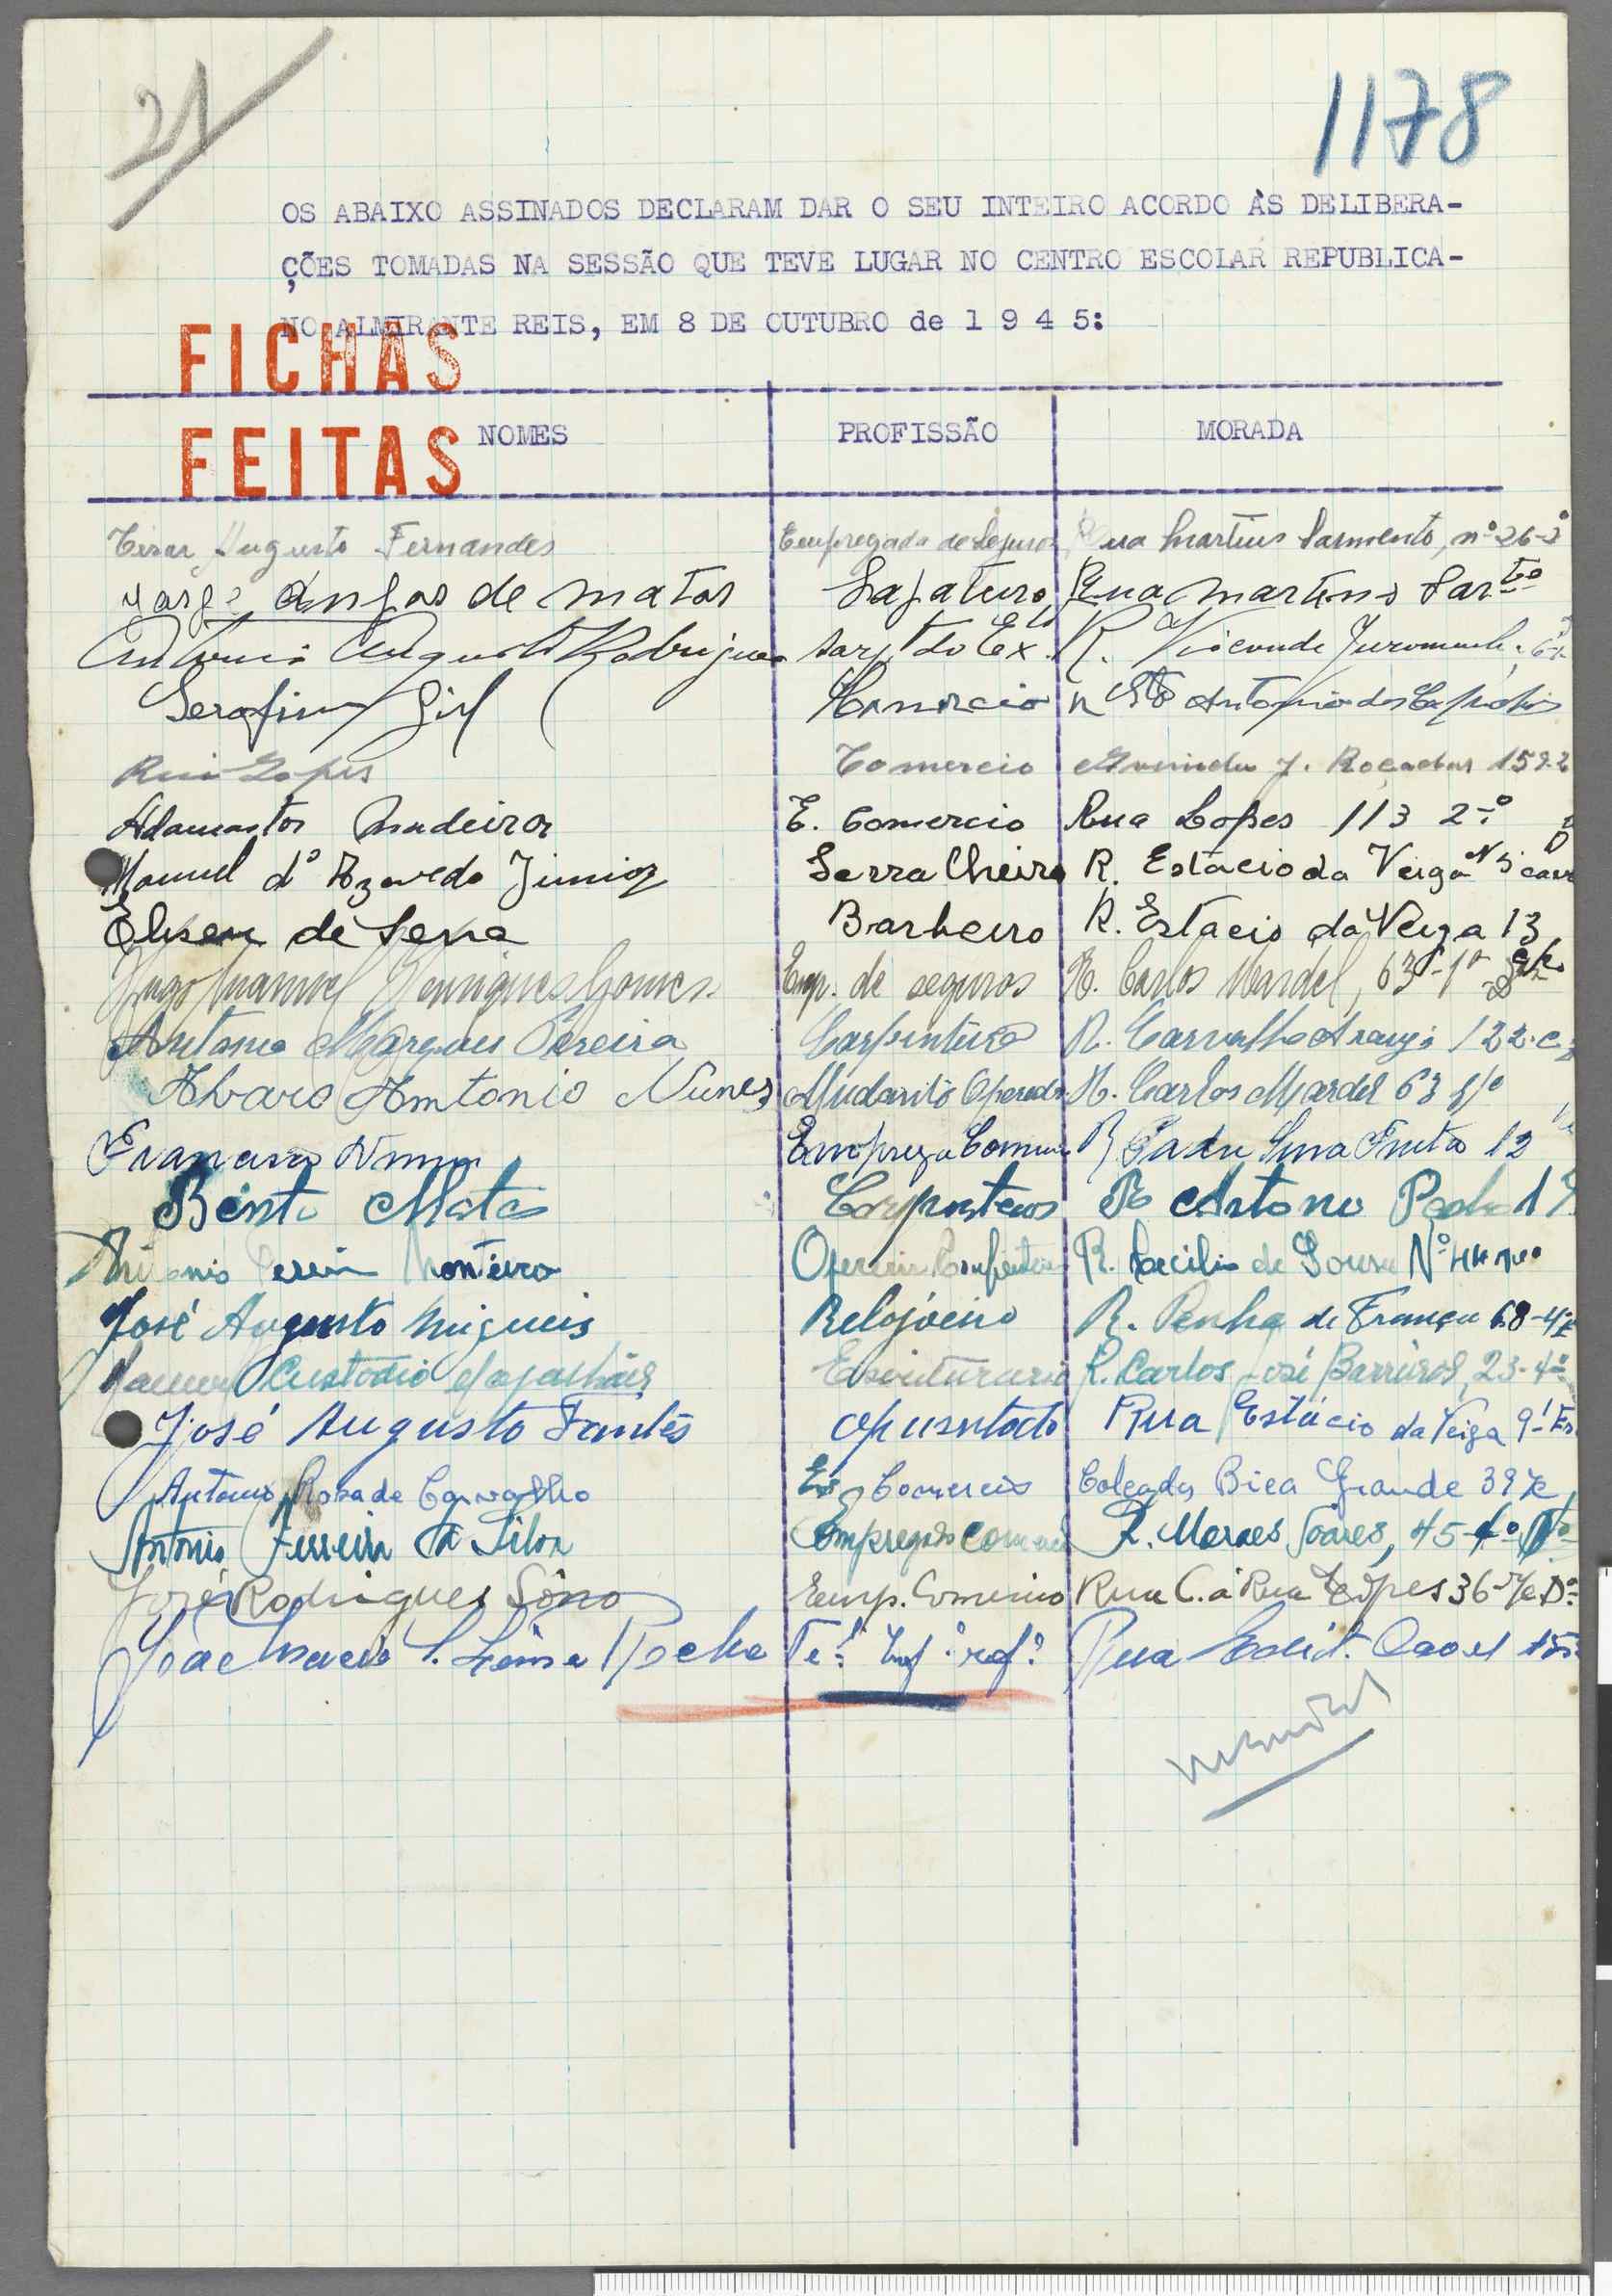 21
1178
OS ABAIXO ASSINADOS DECLARAM DAR O SEU INTEIRO ACORDO ÀS DELIBERA-
ÇÕES TOMADAS NA SESSÃO QUE TEVE LUGAR NO CENTRO ESCOLAR REPUBLICA-
NO ALMIRANTE REIS, EM 8 DE OUTUBRO de 1 9 4 5:
FICHAS
FEITAS
NOMES PROFISSÃO MORADA
Cesar Augusto Fernandes Empregado de Seguros Rua Martins Sarmento, nº 26-2º
Jorge de Matos Sapateiro Rua Martins Sarto
Antonio Augusto Rodrigues Sargto do Exto R. Visconde Juromenha
Serafim Gil Comercio R Sto Antonio dos Capuchos
Rui Lopes Comercio Avenida J. Roçadas 159-2
Adamastor Madeira E. Comercio Rua Lopes 113 2º
Manuel dº Azevedo Junior Serralheiro R. Estácio da Veiga Nº
Eliseu de Sena Barbeiro R. Estácio da Veiga 13
Hugo Manuel Henriques Gomes Emp. de seguros R. Carlos Mardel, 63-1º
Antonio Marques Pereira Carpinteiro R. Carvalho Araujo 122
Alvaro Antonio Nunes R. Carlos Mardel 63
Francisco Nunes R Padre Sena Freitas 12
Bento Matos Carpinteiro R Antonio Pedro
Antonio Pereira Monteiro Operario Confeiteiro R. Cecilia de Sousa Nº
José Augusto Migueis Relojoeiro R. Penha de França 68-4º
Manuel Custodio Magalhães Escriturario R. Carlos José Barreiros, 23-4º
José Augusto Fantes Apusntado Rua Estácio da Veiga 9
Antonio Rosa de Carvalho Comercio Calçada Bica Grande 39
Antonio Ferreira da Silva Empregado Comercio R. Moraes Soares, 45-4º
José Rodrigues Emp. Comercio Rua C. á Rua Lopes 36
Lima Rocha Te. Inf. ref. Rua